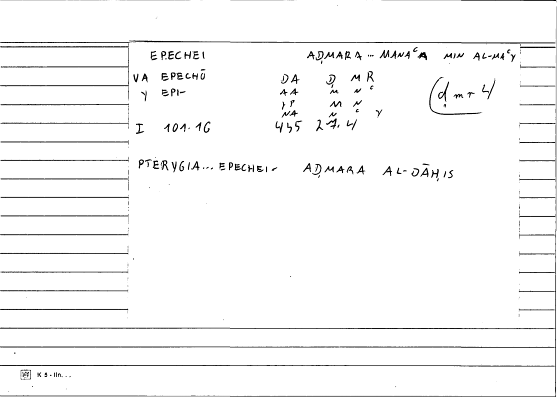 EPECHEI ADMARA ... MANAᶜA MIN AL-MAᶜY
VA EPECHŌ DA Ḍ M R
Y EPI- AA M N ᶜ (ḍ m r 4)
IP M N
NA N ᶜ Y
I 101.16 445 27.4
PTERYGIA ... EPECHEI- AḌMARA AL-DĀḤIS
K 5 - IIn. . .